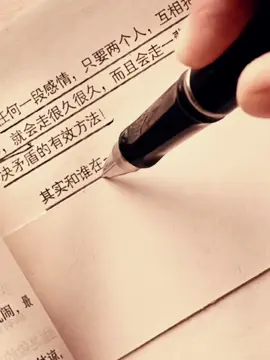 任何一段感情，只要两个人，互相
就会走很久很久，而且会走一
决矛盾的有效方法！
其实和谁在一
闹，最